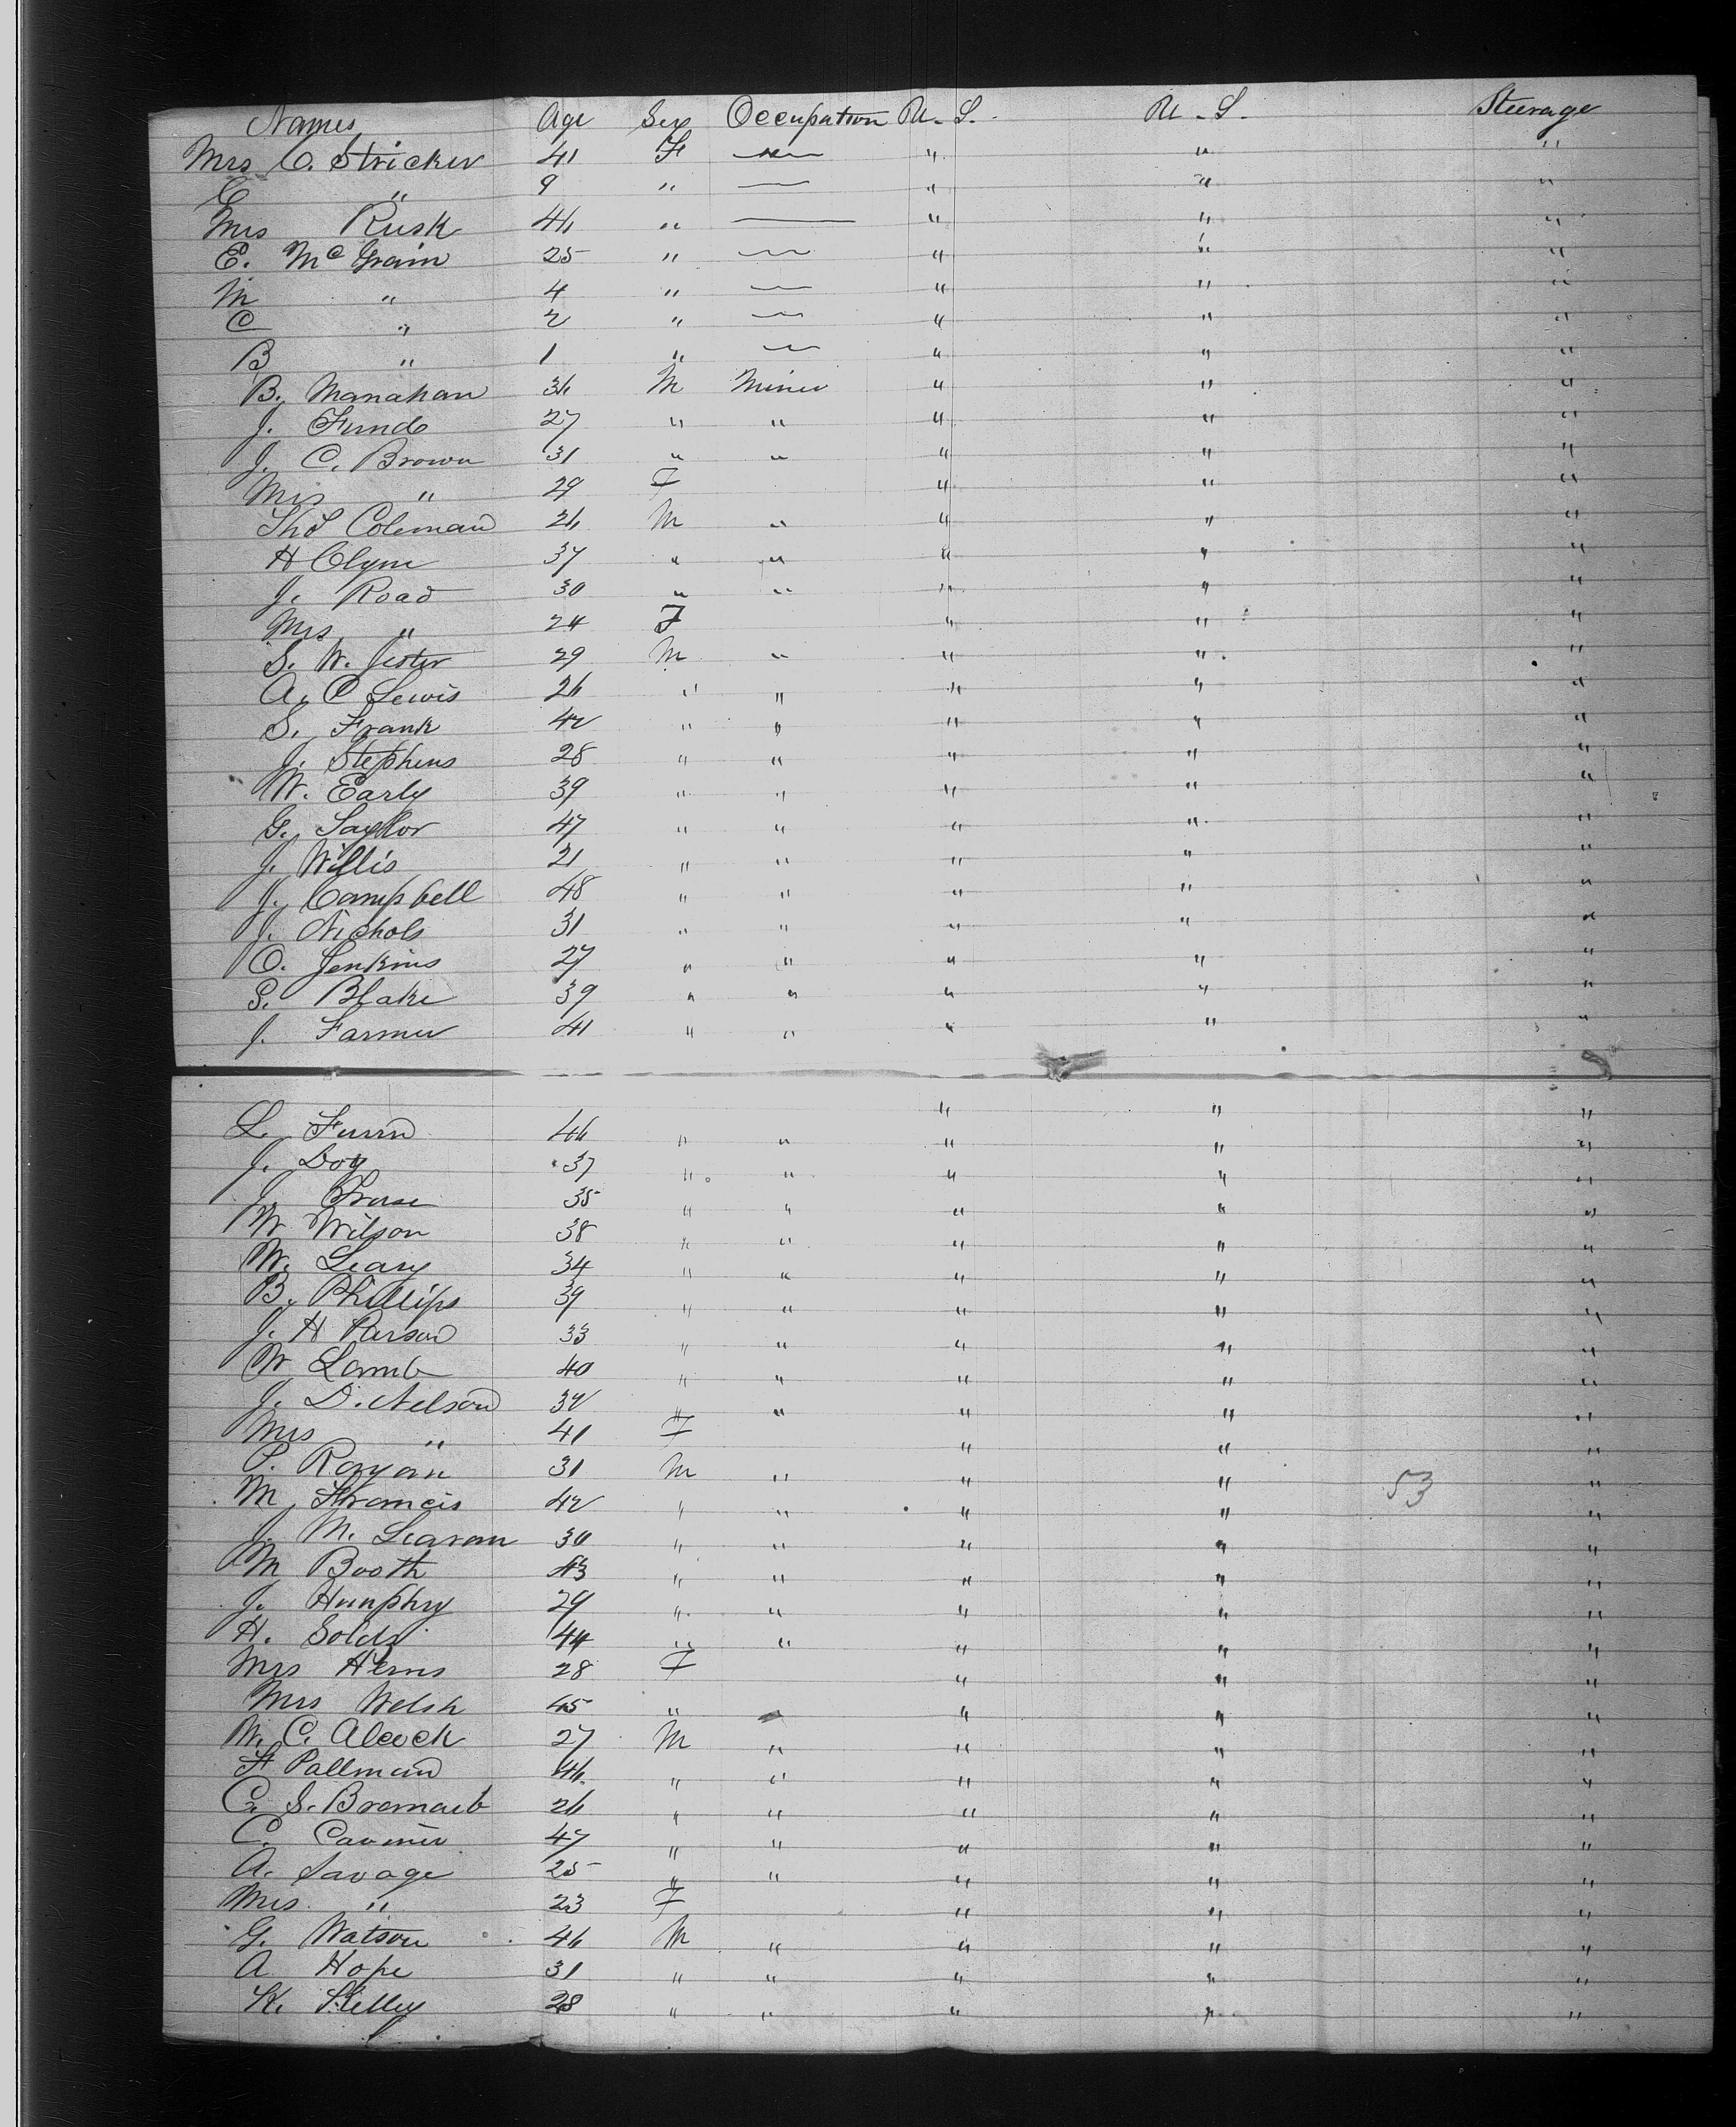 Names Age Sex Occupation U.S. U.S. Steerage
Mrs C. Stricker 41 F — " " "
C " 9 " — " " "
Mrs Rusk 46 " — " " "
E. McGrain 25 " — " " "
M " 4 " — " " "
C " 2 " — " " "
B " 1 " — " " "
B. Manahan 36 M Miner " " "
J. Funds 27 " " " " "
J. C. Brown 31 " " " " "
Mrs " 29 F " " "
Thos Coleman 26 M " " " "
H Clym 37 " " " " "
J. Road 30 " " " " "
Mrs " 24 F " " "
S. W. Jester 29 M " " " "
A. C Lewis 26 " " " " "
S. Frank 42 " " " " "
J. Stephens 28 " " " " "
W. Early 39 " " " " "
G. Taylor 47 " " " " "
J. Willis 21 " " " " "
J. Campbell 48 " " " " "
J. Nichols 31 " " " " "
O. Jenkins 27 " " " " "
S. Blake 39 " " " " "
J. Farmer 41 " " " " "
" " "
L. 46 " " " " "
J. Doty 37 " " " " "
J. 35 " " " " "
W Wilson 38 " " " " "
W. Leary 34 " " " " "
B. Phillips 39 " " " " "
J. H Parson 33 " " " " "
W Lamb 40 " " " " "
J. D. Nelson 32 " " " " "
Mrs " 41 F " " "
P. Rayan 31 M " " " 53 "
M, Francis 42 " " " " "
J. M. Learan 30 " " " " "
M Booth 43 " " " " "
J. Humphry 29 " " " " "
H. Solds 44 " " " " "
Mrs Herns 28 F " " "
Mrs Welsh 45 " " " "
W. C. Alcock 27 M " " " "
F Pallman 46 " " " " "
C. S. 26 " " " " "
C. 47 " " " " "
A. Savage 25 " " " " "
Mrs " 23 F " " "
G. Watson 46 M " " " "
A Hope 31 " " " " "
K. Kelley 28 " " " " "